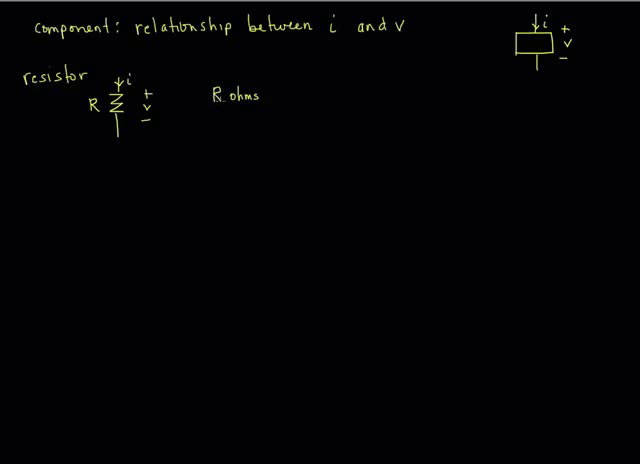 component: relationship between i and v
i
+
v
−
resistor
i
R
+
v
−
R ohms